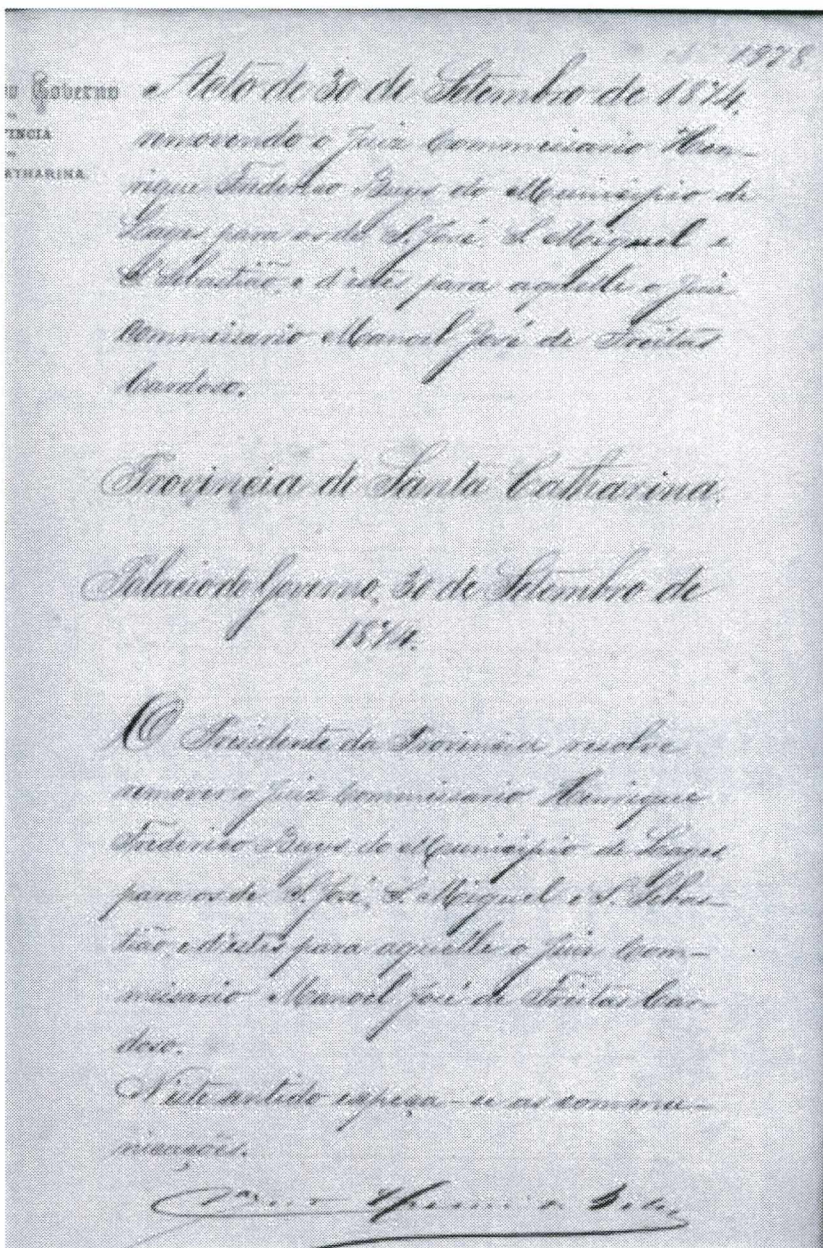 Nº 1978
o Governo
DA
VINCIA
DE
ATHARINA.
Acto de 30 de Setembro de 1874,
removendo o Juiz Commissario Hen-
rique Frederico Buys do Municipio de
Lages para os de S. José, S. Miguel e
S. Sebastião, e d'estes para aquelle o Juiz
Commissario Manoel José de Freitas
Cardoso.
Provincia de Santa Catharina.
Palacio do Governo, 30 de Setembro de
1874.
O Presidente da Provincia resolve
remover o Juiz Commissario Henrique
Frederico Buys, do Municipio de Lages
para os de S. José, S. Miguel e S. Sebas-
tião, e d'estes para aquelle o Juiz Com-
missario Manoel José de Freitas Car-
doso.
N'este sentido expeça-se as commu-
nicações.